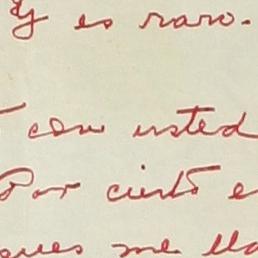 Y es raro.
con usted
Por cierto e
ques me lla